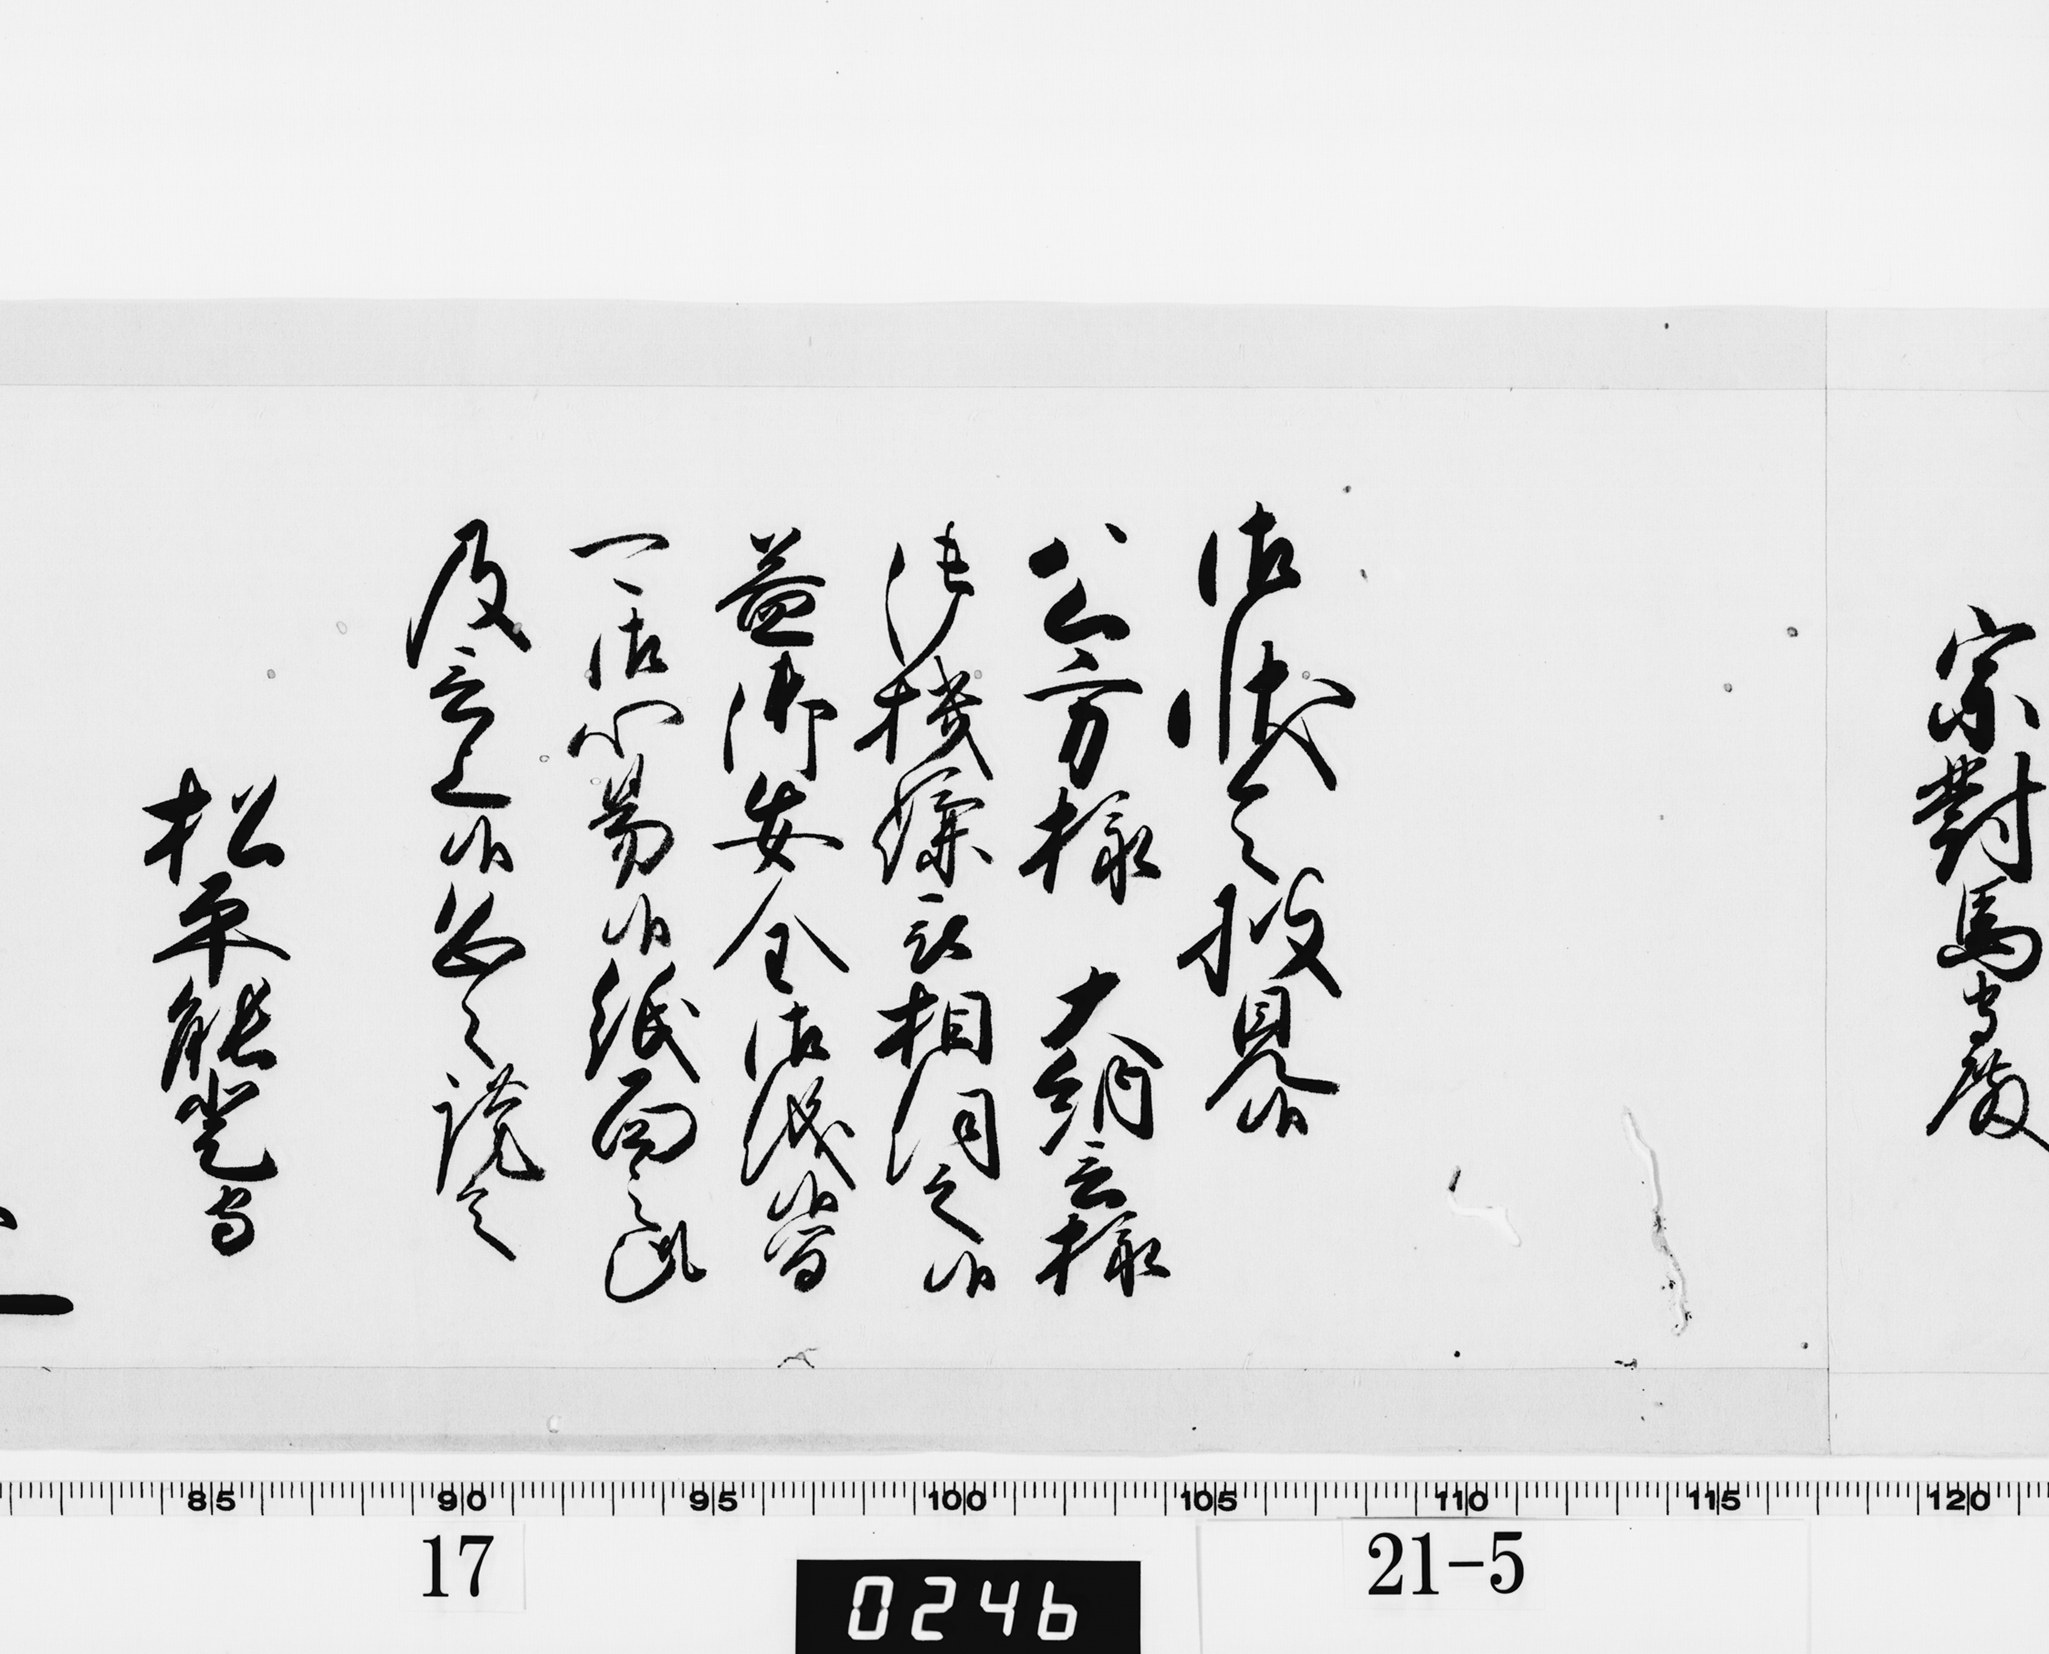 宗對馬守殿
御状令披見候
公方様 大納言様
御機嫌被相伺之候
益御安全御儀候
可御心易候紙面之趣
及言上候恐々謹言
松平能登守
85 90 95 100 105 110 115 120
17
0246
21-5